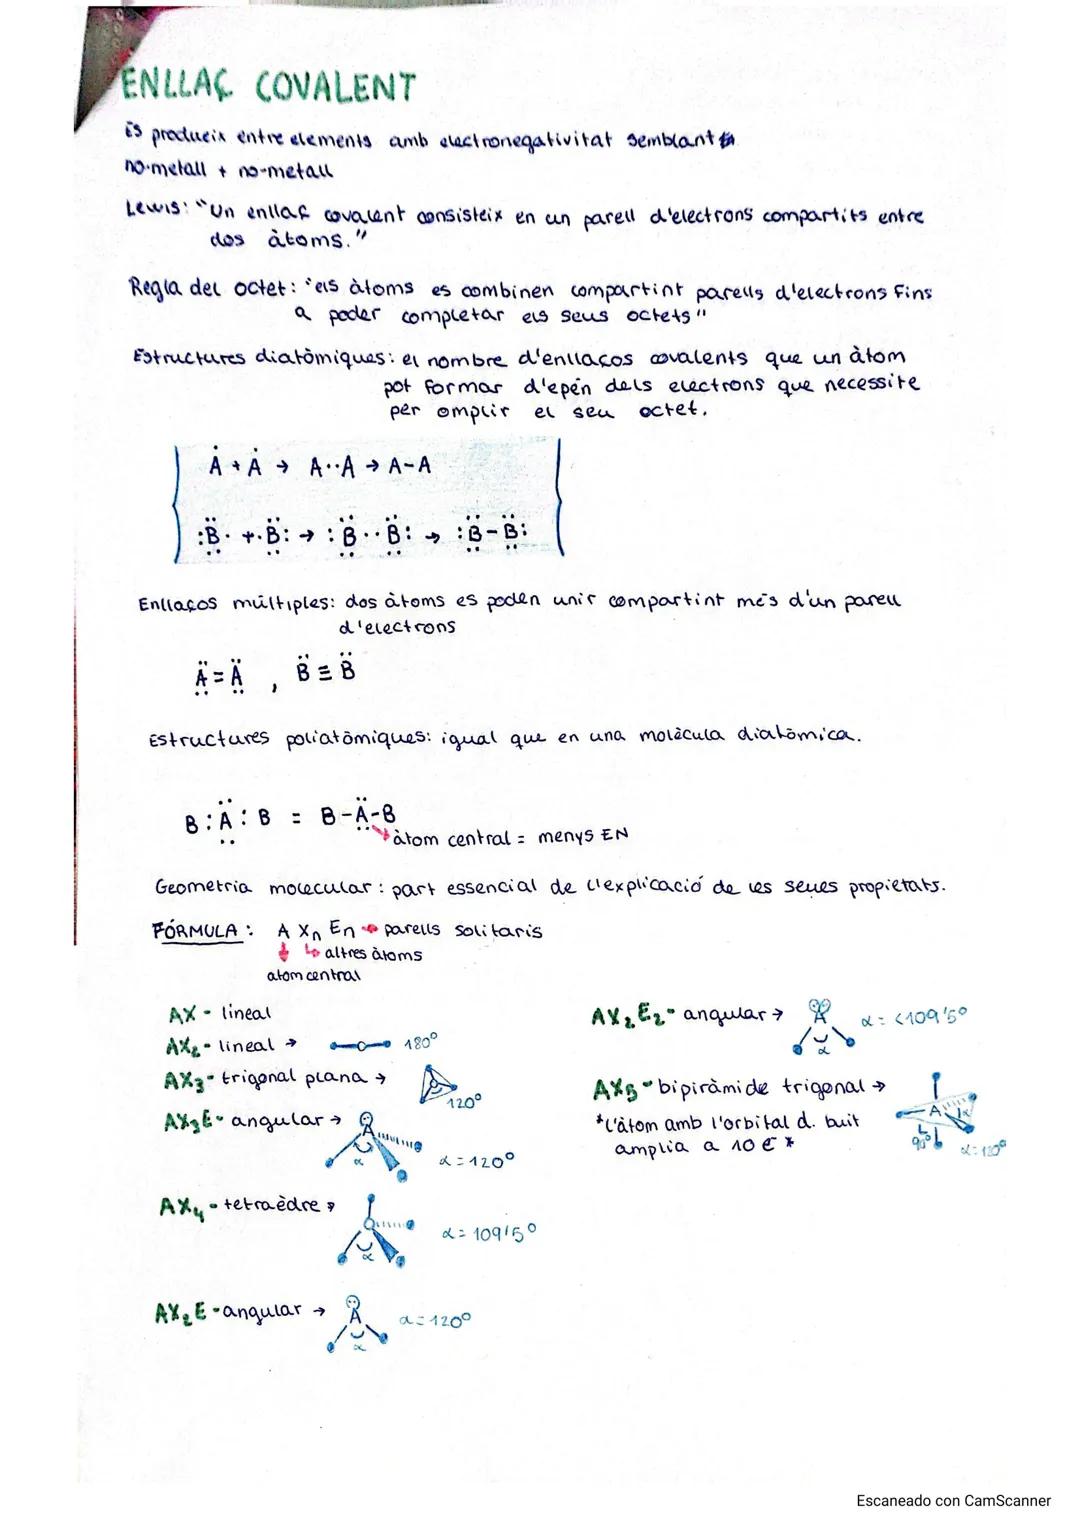 ENLLAÇ COVALENT
És produeix entre elements amb electronegativitat semblant
no-metall + no-metall
Lewis: "Un enllaç covalent consisteix en un parell d'electrons compartits entre
dos àtoms."
Regla del octet: "els àtoms es combinen compartint parells d'electrons fins
a poder completar els seus octets"
Estructures diatòmiques: el nombre d'enllaços covalents que un àtom
pot formar d'epén dels electrons que necessite
per omplir el seu octet.
Ȧ + Ȧ → A··A → A-A
:B̤̈· + ·B̤̈: → :B̤̈··B̤̈: → :B̤̈-B̤̈:
Enllaços múltiples: dos àtoms es poden unir compartint més d'un parell
d'electrons
Ä̤=Ä̤ , B̈≡B̈
Estructures poliatòmiques: igual que en una molècula diatòmica.
B:Ä̤:B = B-Ä̤-B
àtom central = menys EN
Geometria molecular: part essencial de l'explicació de les seues propietats.
FÓRMULA: A Xn En → parells solitaris
↳ altres àtoms
atom central
AX - lineal
AX₂ - lineal → 180º
AX₃ - trigonal plana → 120º
AX₃E - angular → A α α=120º
AX₄ - tetraèdre → α α=109'5º
AX₂E - angular → A α α=120º
AX₂E₂ - angular → A α α=<109'5º
AX5 - bipiràmide trigonal → A α 90º α=120º
*L'àtom amb l'orbital d. buit
amplia a 10 e⁻ *
Escaneado con CamScanner